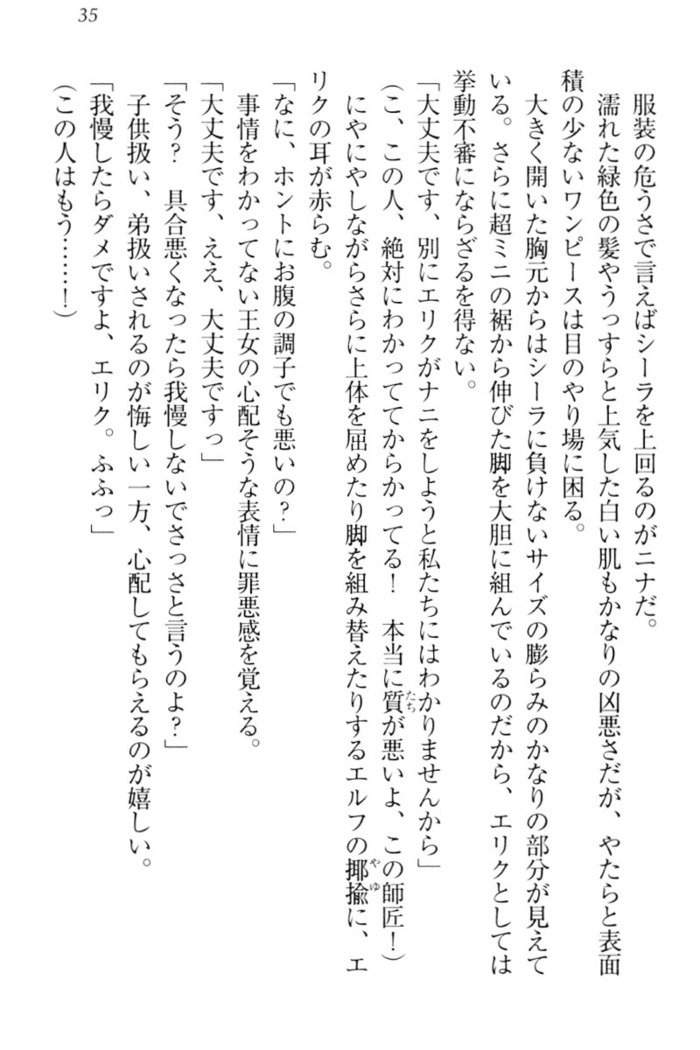 35
服装の危うさで言えばシーラを上回るのがニナだ。
濡れた緑色の髪やうっすらと上気した白い肌もかなりの凶悪さだが、やたらと表面
積の少ないワンピースは目のやり場に困る。
大きく開いた胸元からはシーラに負けないサイズの膨らみのかなりの部分が見えて
いる。さらに超ミニの裾から伸びた脚を大胆に組んでいるのだから、エリクとしては
挙動不審にならざるを得ない。
「大丈夫です、別にエリクがナニをしようと私たちにはわかりませんから」
(こ、この人、絶対にわかっててからかってる！　本当に質たちが悪いよ、この師匠！)
にやにやしながらさらに上体を屈めたり脚を組み替えたりするエルフの揶揄やゆに、エ
リクの耳が赤らむ。
「なに、ホントにお腹の調子でも悪いの？」
事情をわかってない王女の心配そうな表情に罪悪感を覚える。
「大丈夫です、ええ、大丈夫ですっ」
「そう？　具合悪くなったら我慢しないでさっさと言うのよ？」
子供扱い、弟扱いされるのが悔しい一方、心配してもらえるのが嬉しい。
「我慢したらダメですよ、エリク。ふふっ」
(この人はもう……！)